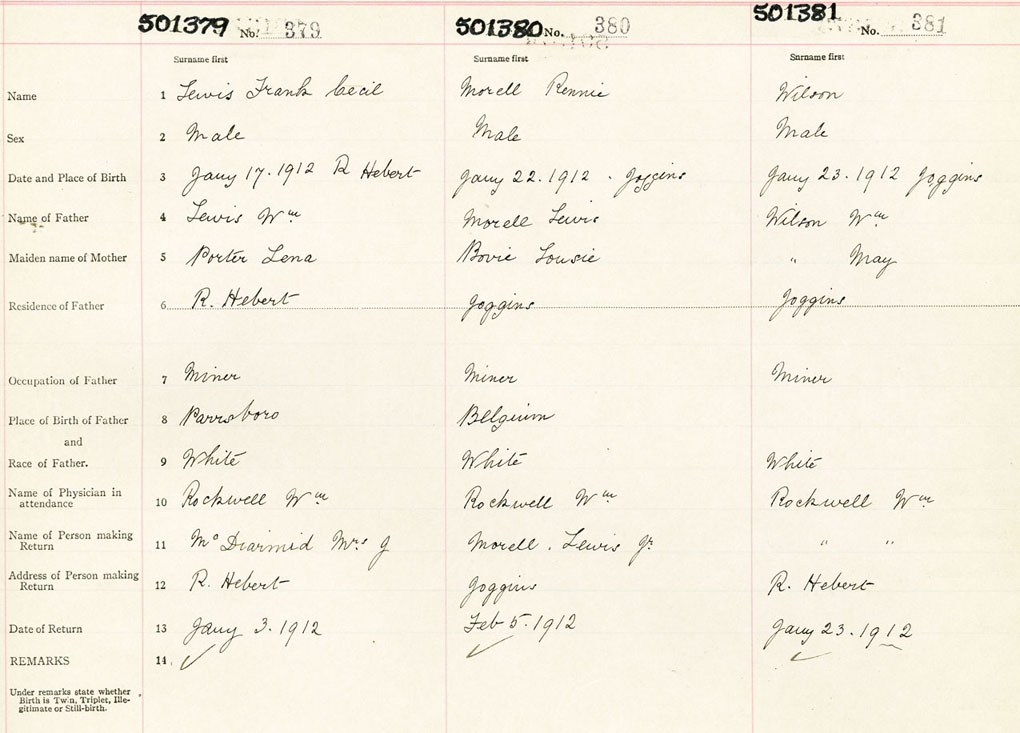 501379 No. 379 501380 No. 380 501381 No. 381
Surname first Surname first Surname first
Name 1 Lewis Frank Cecil Morell Rennie Wilson
Sex 2 Male Male Male
Date and Place of Birth 3 Jany 17. 1912 R Hebert Jany 22. 1912 . Joggins Jany 23. 1912 Joggins
Name of Father 4 Lewis Wm Morell Lewis Wilson Wm
Maiden name of Mother 5 Porter Lena Bovie Lousie " May
Residence of Father 6 R. Hebert Joggins Joggins
Occupation of Father 7 Miner Miner Miner
Place of Birth of Father 8 Parrsboro Belgium
and
Race of Father. 9 White White White
Name of Physician in
attendance 10 Rockwell Wm Rockwell Wm Rockwell Wm
Name of Person making
Return 11 Mc Diarmid Mrs J Morell . Lewis Jr. " "
Address of Person making
Return 12 R. Hebert Joggins R. Hebert
Date of Return 13 Jany 3. 1912 Feb 5. 1912 Jany 23. 1912
REMARKS 14. ✓ ✓ ✓
Under remarks state whether
Birth is Twin, Triplet, Ille-
gitimate or Still-birth.